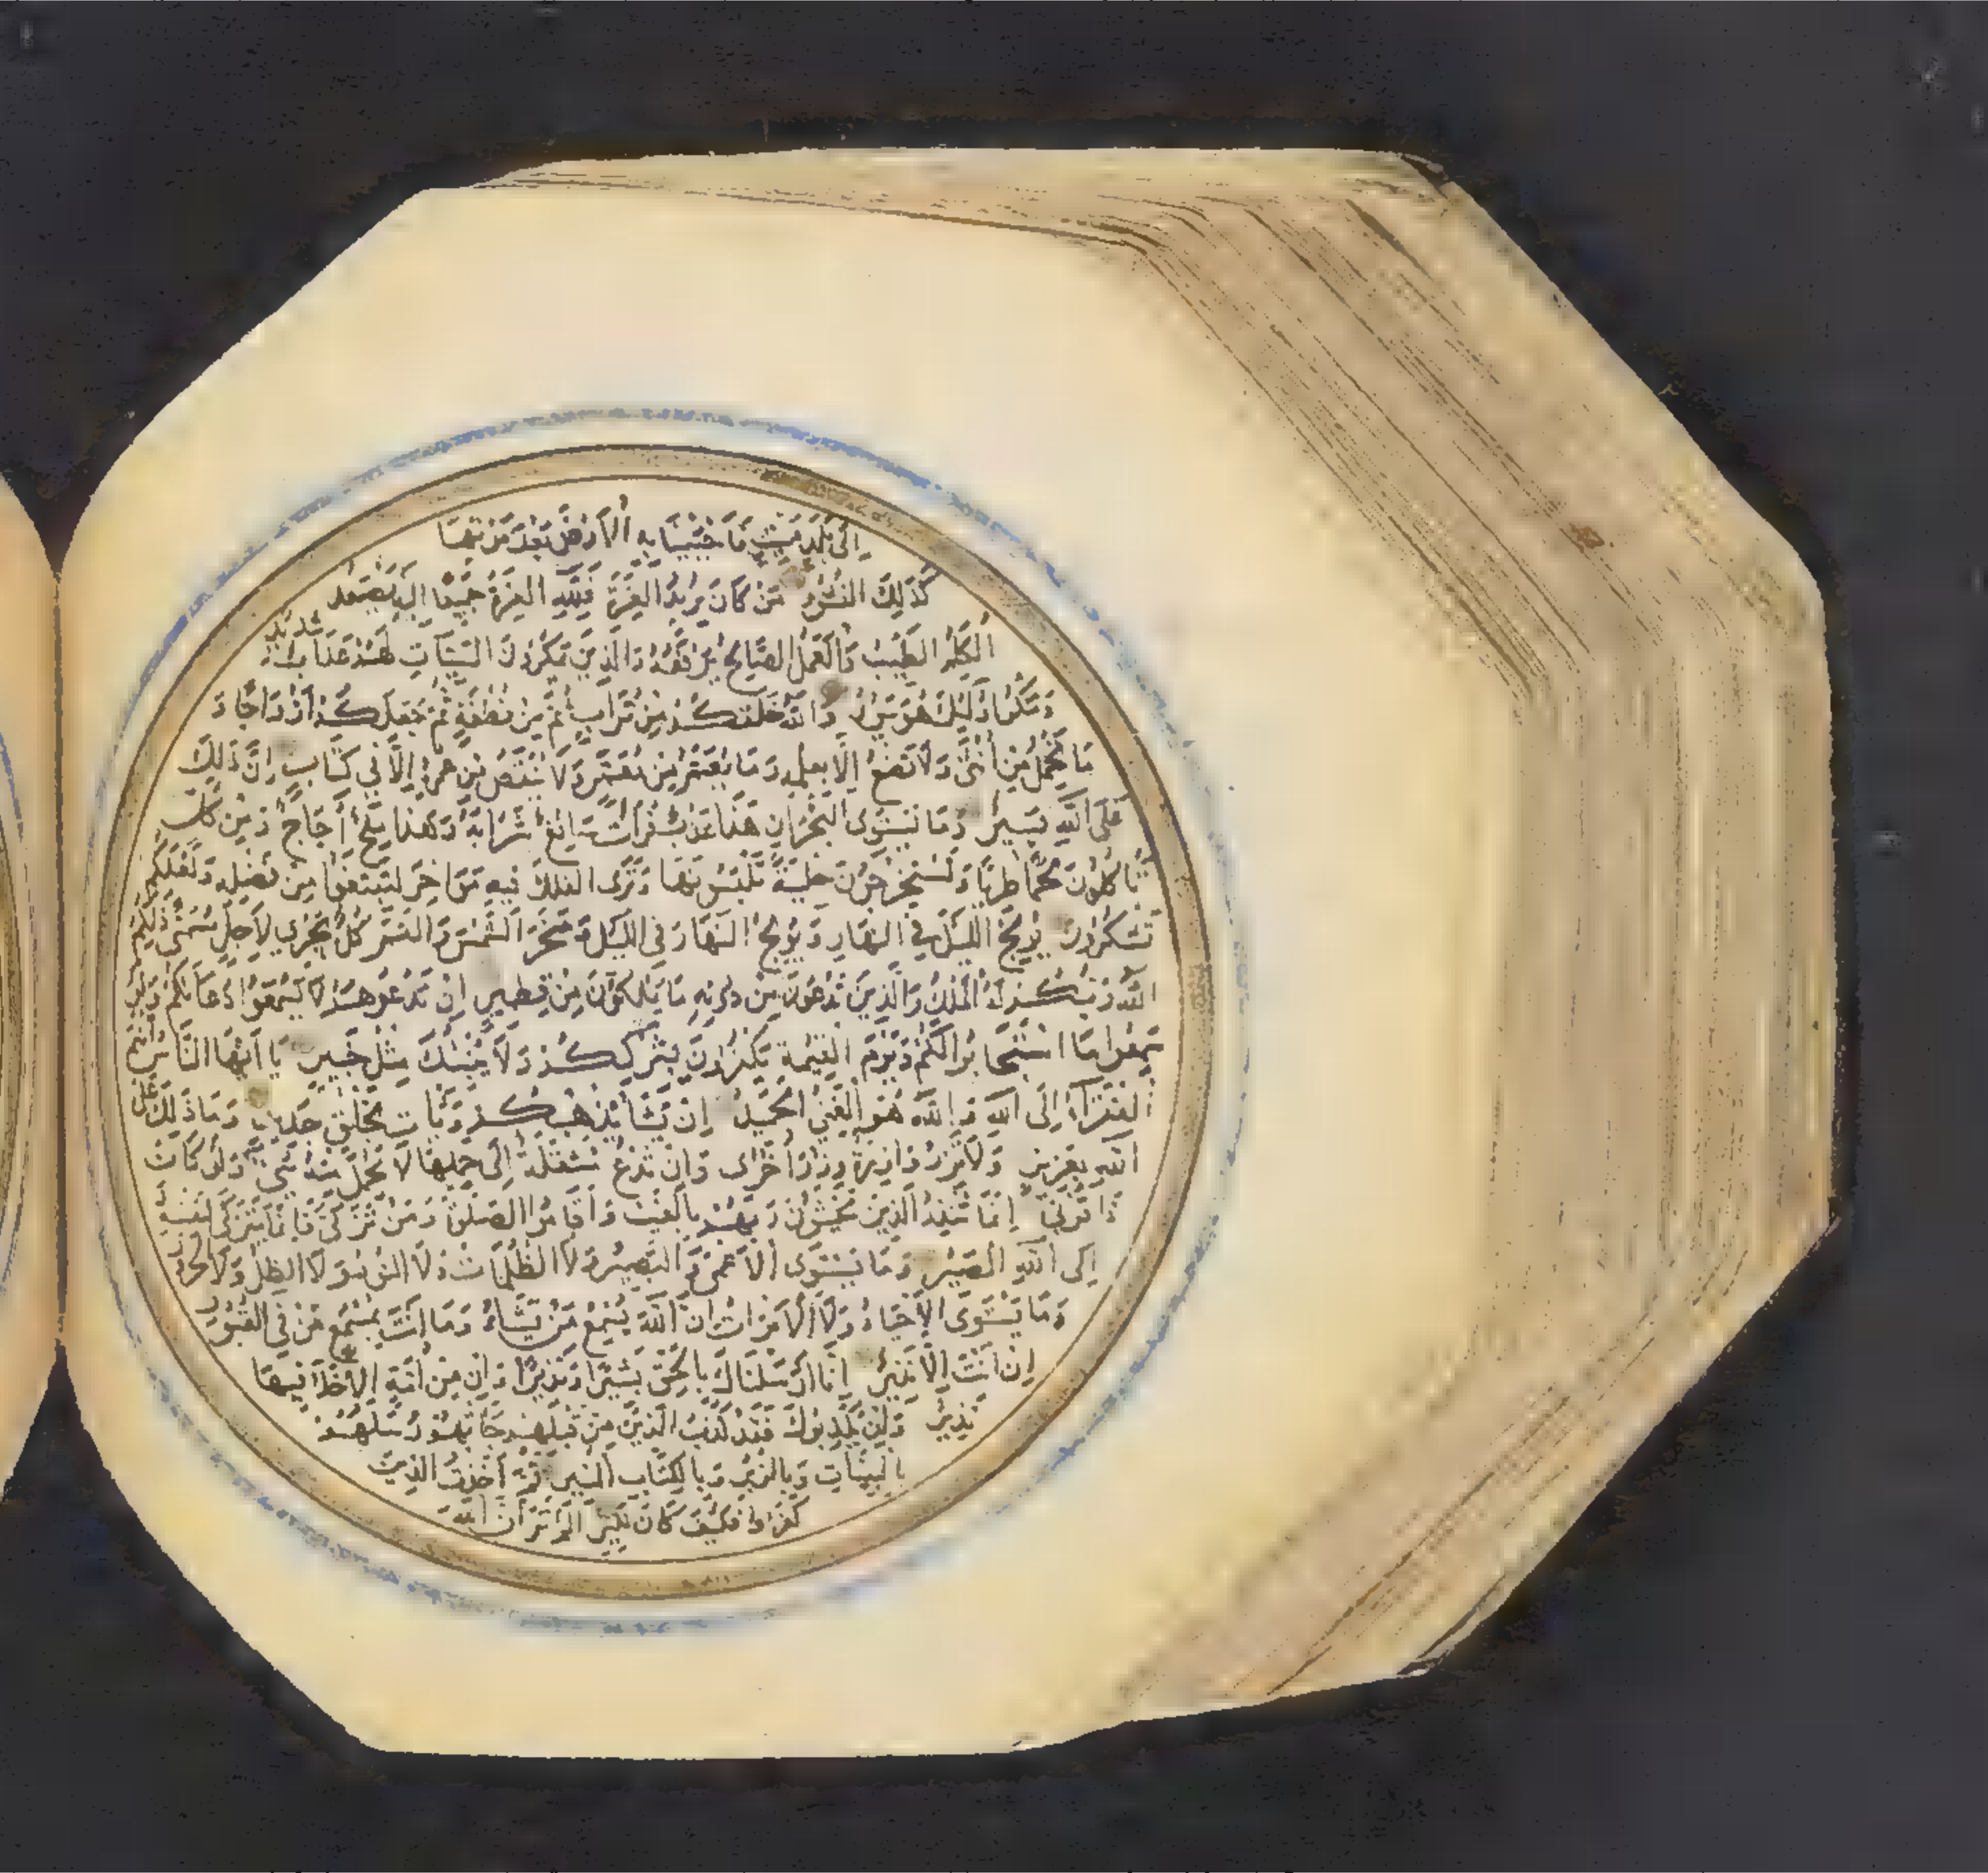 إِلَى بَلَدٍ مَيِّتٍ فَأَحْيَيْنَا بِهِ الْأَرْضَ بَعْدَ مَوْتِهَا
كَذَلِكَ النُّشُورُ مَنْ كَانَ يُرِيدُ الْعِزَّةَ فَلِلَّهِ الْعِزَّةُ جَمِيعًا إِلَيْهِ يَصْعَدُ
الْكَلِمُ الطَّيِّبُ وَالْعَمَلُ الصَّالِحُ يَرْفَعُهُ وَالَّذِينَ يَمْكُرُونَ السَّيِّئَاتِ لَهُمْ عَذَابٌ شَدِيدٌ
وَمَكْرُ أُولَئِكَ هُوَ يَبُورُ وَاللَّهُ خَلَقَكُمْ مِنْ تُرَابٍ ثُمَّ مِنْ نُطْفَةٍ ثُمَّ جَعَلَكُمْ أَزْوَاجًا وَ
مَا تَحْمِلُ مِنْ أُنْثَى وَلَا تَضَعُ إِلَّا بِعِلْمِهِ وَمَا يُعَمَّرُ مِنْ مُعَمَّرٍ وَلَا يُنْقَصُ مِنْ عُمُرِهِ إِلَّا فِي كِتَابٍ إِنَّ ذَلِكَ
عَلَى اللَّهِ يَسِيرٌ وَمَا يَسْتَوِي الْبَحْرَانِ هَذَا عَذْبٌ فُرَاتٌ سَائِغٌ شَرَابُهُ وَهَذَا مِلْحٌ أُجَاجٌ وَمِنْ كُلٍّ
تَأْكُلُونَ لَحْمًا طَرِيًّا وَتَسْتَخْرِجُونَ حِلْيَةً تَلْبَسُونَهَا وَتَرَى الْفُلْكَ فِيهِ مَوَاخِرَ لِتَبْتَغُوا مِنْ فَضْلِهِ وَلَعَلَّكُمْ
تَشْكُرُونَ يُولِجُ اللَّيْلَ فِي النَّهَارِ وَيُولِجُ النَّهَارَ فِي اللَّيْلِ وَسَخَّرَ الشَّمْسَ وَالْقَمَرَ كُلٌّ يَجْرِي لِأَجَلٍ مُسَمًّى ذَلِكُمُ
اللَّهُ رَبُّكُمْ لَهُ الْمُلْكُ وَالَّذِينَ تَدْعُونَ مِنْ دُونِهِ مَا يَمْلِكُونَ مِنْ قِطْمِيرٍ إِنْ تَدْعُوهُمْ لَا يَسْمَعُوا دُعَاءَكُمْ وَلَوْ
سَمِعُوا مَا اسْتَجَابُوا لَكُمْ وَيَوْمَ الْقِيمَةِ يَكْفُرُونَ بِشِرْكِكُمْ وَلَا يُنَبِّئُكَ مِثْلُ خَبِيرٍ يَا أَيُّهَا النَّاسُ أَنْتُمُ
الْفُقَرَاءُ إِلَى اللَّهِ وَاللَّهُ هُوَ الْغَنِيُّ الْحَمِيدُ إِنْ يَشَأْ يُذْهِبْكُمْ وَيَأْتِ بِخَلْقٍ جَدِيدٍ وَمَا ذَلِكَ عَلَى
اللَّهِ بِعَزِيزٍ وَلَا تَزِرُ وَازِرَةٌ وِزْرَ أُخْرَى وَإِنْ تَدْعُ مُثْقَلَةٌ إِلَى حِمْلِهَا لَا يُحْمَلْ مِنْهُ شَيْءٌ وَلَوْ كَانَ
ذَا قُرْبَى إِنَّمَا تُنْذِرُ الَّذِينَ يَخْشَوْنَ رَبَّهُمْ بِالْغَيْبِ وَأَقَامُوا الصَّلٰوةَ وَمَنْ تَزَكَّى فَإِنَّمَا يَتَزَكَّى لِنَفْسِهِ وَ
إِلَى اللَّهِ الْمَصِيرُ وَمَا يَسْتَوِي الْأَعْمَى وَالْبَصِيرُ وَلَا الظُّلُمَاتُ وَلَا النُّورُ وَلَا الظِّلُّ وَلَا الْحَرُورُ
وَمَا يَسْتَوِي الْأَحْيَاءُ وَلَا الْأَمْوَاتُ إِنَّ اللَّهَ يُسْمِعُ مَنْ يَشَاءُ وَمَا أَنْتَ بِمُسْمِعٍ مَنْ فِي الْقُبُورِ
إِنْ أَنْتَ إِلَّا نَذِيرٌ إِنَّا أَرْسَلْنَاكَ بِالْحَقِّ بَشِيرًا وَنَذِيرًا وَإِنْ مِنْ أُمَّةٍ إِلَّا خَلَا فِيهَا
نَذِيرٌ وَإِنْ يُكَذِّبُوكَ فَقَدْ كَذَّبَ الَّذِينَ مِنْ قَبْلِهِمْ جَاءَتْهُمْ رُسُلُهُمْ
بِالْبَيِّنَاتِ وَبِالزُّبُرِ وَبِالْكِتَابِ الْمُنِيرِ ثُمَّ أَخَذْتُ الَّذِينَ
كَفَرُوا فَكَيْفَ كَانَ نَكِيرِ أَلَمْ تَرَ أَنَّ اللَّهَ